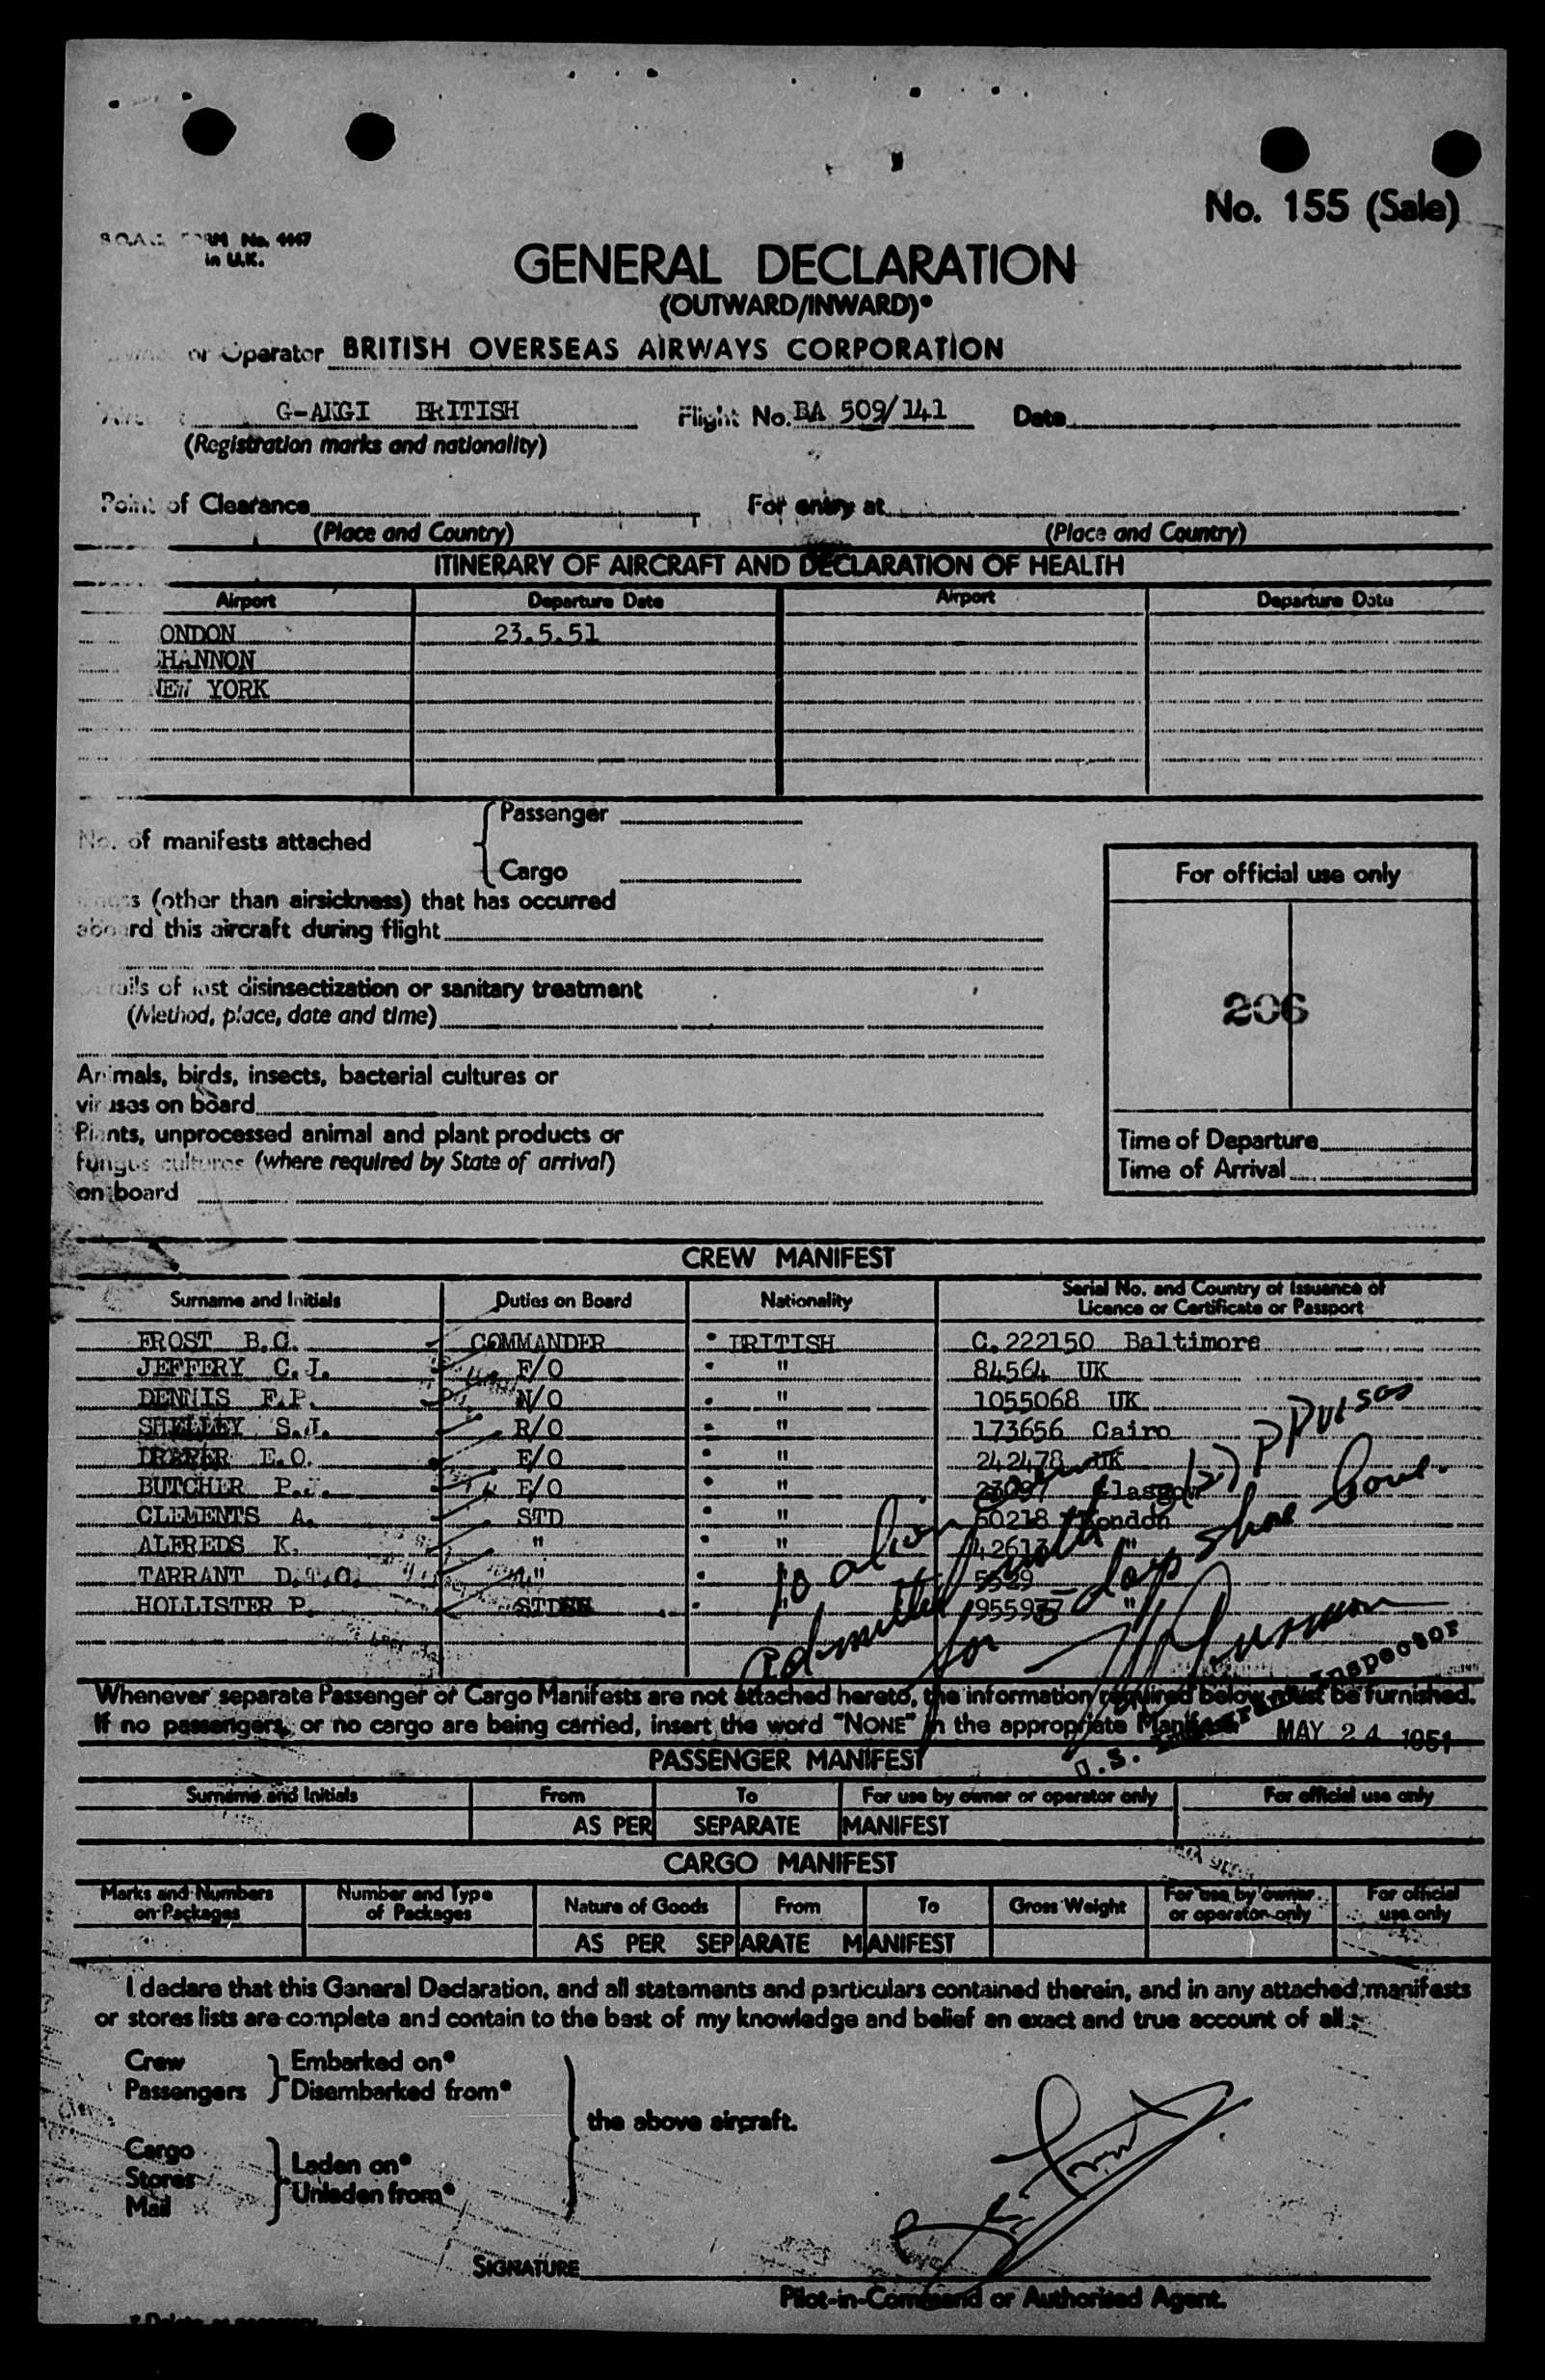 No. 155 (Sale)
No. 4447
in U.K.
GENERAL DECLARATION
(OUTWARD/INWARD)*
or Operator BRITISH OVERSEAS AIRWAYS CORPORATION
G-AKGI BRITISH Flight No. BA 509/141 Date
(Registration marks and nationality)
Point of Clearance For entry at
(Place and Country) (Place and Country)
ITINERARY OF AIRCRAFT AND DECLARATION OF HEALTH
Airport Departure Date Airport Departure Date
ONDON 23.5.51
HANNON
NEW YORK
No. of manifests attached
Passenger
Cargo
For official use only
(other than airsickness) that has occurred
aboard this aircraft during flight
of last disinsectization or sanitary treatment
(Method, place, date and time)
206
Animals, birds, insects, bacterial cultures or
viruses on board
Plants, unprocessed animal and plant products or
fungus cultures (where required by State of arrival)
on board
Time of Departure
Time of Arrival
CREW MANIFEST
Surname and Initials Duties on Board Nationality Serial No. and Country of Issuance of
Licence or Certificate or Passport
FROST B.G. COMMANDER BRITISH C.222150 Baltimore
JEFFERY C.J. F/O " 84564 UK
DENNIS F.P. N/O " 1055068 UK
SHELLEY S.J. R/O " 173656 Cairo
DRAPER E.O. E/O " 242478 UK
BUTCHER P. E/O " Glasgow
CLEMENTS A. STD " 60218 London
ALFREDS K. " " "
TARRANT D.T.O. " 5529
HOLLISTER P. 955937 "
10 alien
Admitted
for days shore leave.
U.S. Immigrant Inspector
MAY 24 1951
Whenever separate Passenger or Cargo Manifests are not attached hereto, the information required below must be furnished.
If no passengers, or no cargo are being carried, insert the word "NONE" in the appropriate Manifest.
PASSENGER MANIFEST
Surname and Initials From To For use by owner or operator only For official use only
AS PER SEPARATE MANIFEST
CARGO MANIFEST
Marks and Numbers on Packages Number and Type of Packages Nature of Goods From To Gross Weight For use by owner or operator only For official use only
AS PER SEPARATE MANIFEST
I declare that this General Declaration, and all statements and particulars contained therein, and in any attached manifests
or stores lists are complete and contain to the best of my knowledge and belief an exact and true account of all :-
Crew Embarked on*
Passengers Disembarked from*
the above aircraft.
Cargo
Stores Laden on*
Mail Unladen from*
SIGNATURE
Pilot-in-Command or Authorised Agent.